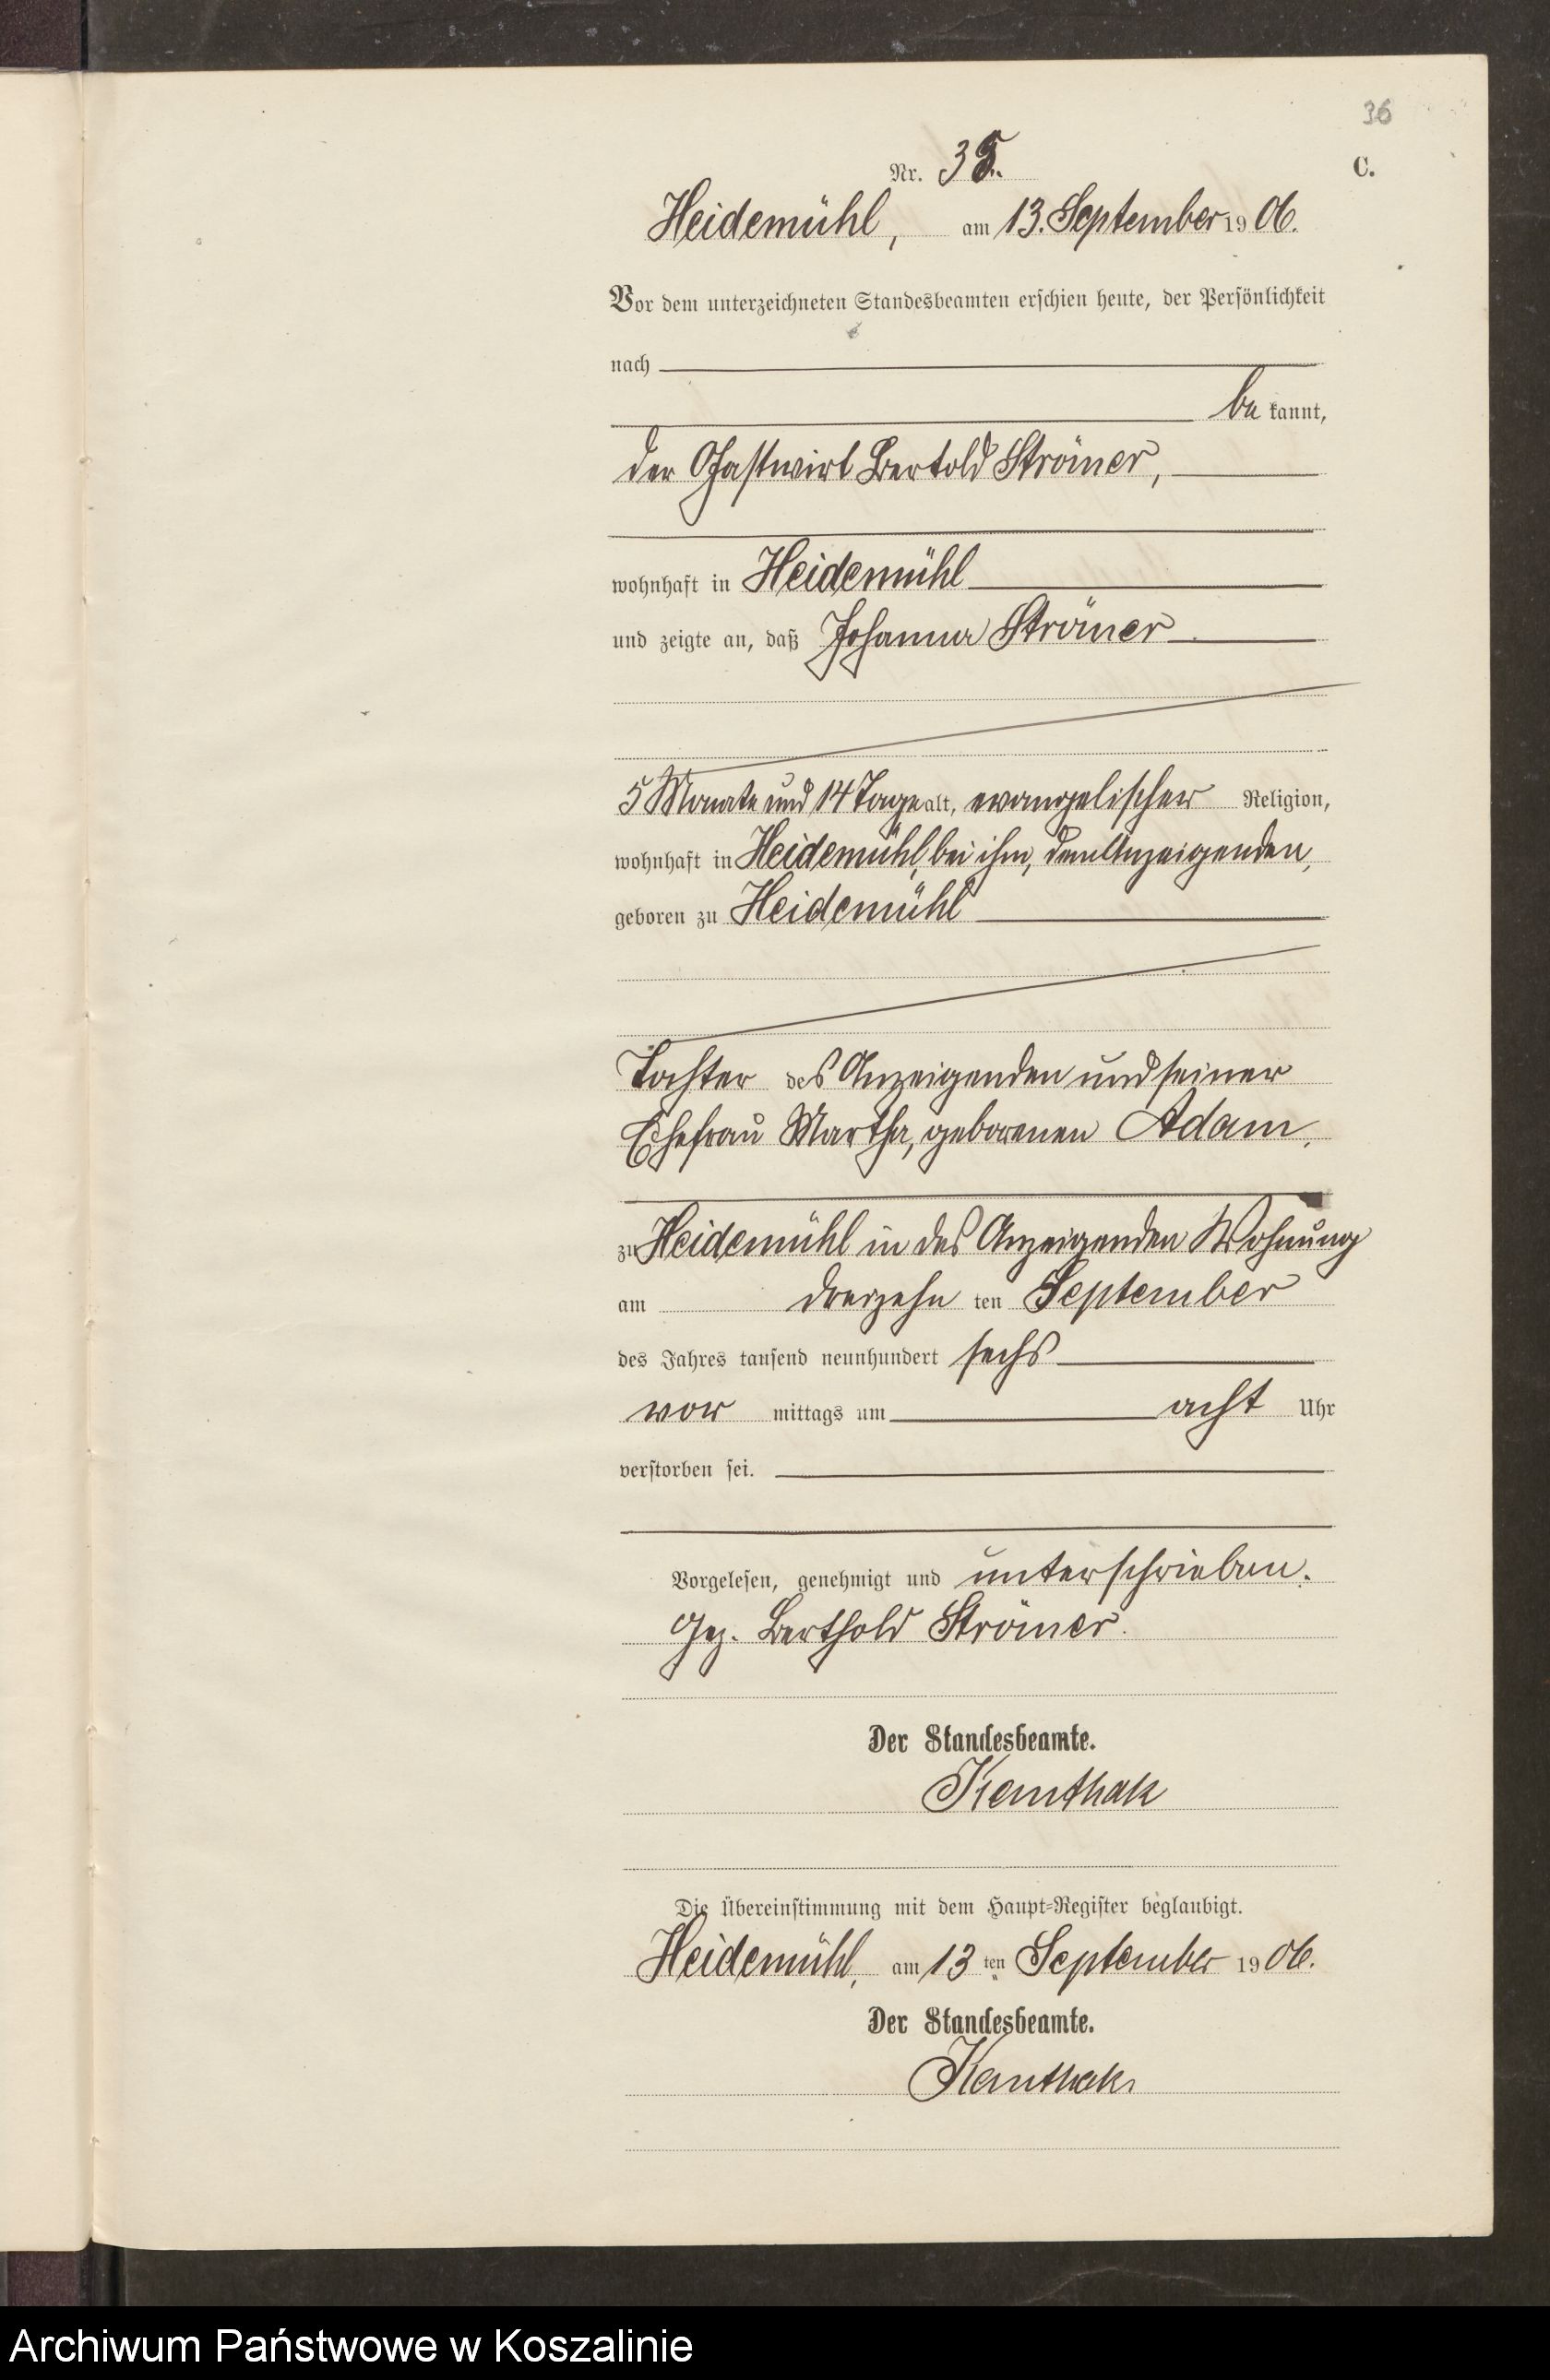 36
Nr. 35.
C.
Heidemühl, am 13. September 1906.
Vor dem unterzeichneten Standesbeamten erschien heute, der Persönlichkeit
nach
be kannt,
der Gastwirt Bertold Strömer,
wohnhaft in Heidemühl
und zeigte an, daß Johanna Strömer
5 Monate und 14 Tage alt, evangelischer Religion,
wohnhaft in Heidemühl, bei ihm, dem Anzeigenden,
geboren zu Heidemühl
Tochter des Anzeigenden und seiner
Ehefrau Martha, geborenen Adam,
zu Heidemühl in des Anzeigenden Wohnung
am dreizehn ten September
des Jahres tausend neunhundert sechs
vor mittags um acht Uhr
verstorben sei.
Vorgelesen, genehmigt und unterschrieben.
Gez. Berthold Strömer.
Der Standesbeamte.
Kemthak
Die Übereinstimmung mit dem Haupt-Register beglaubigt.
Heidemühl, am 13 ten September 1906.
Der Standesbeamte.
Archiwum Państwowe w Koszalinie